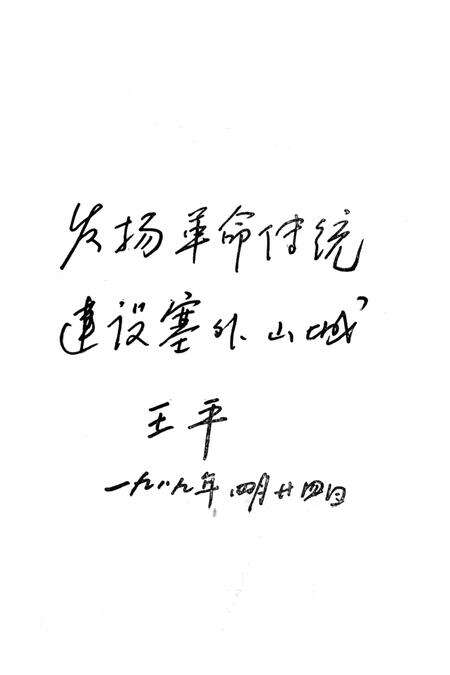 发扬革命传统
建设塞外山城
王平
一九八九年四月廿四日